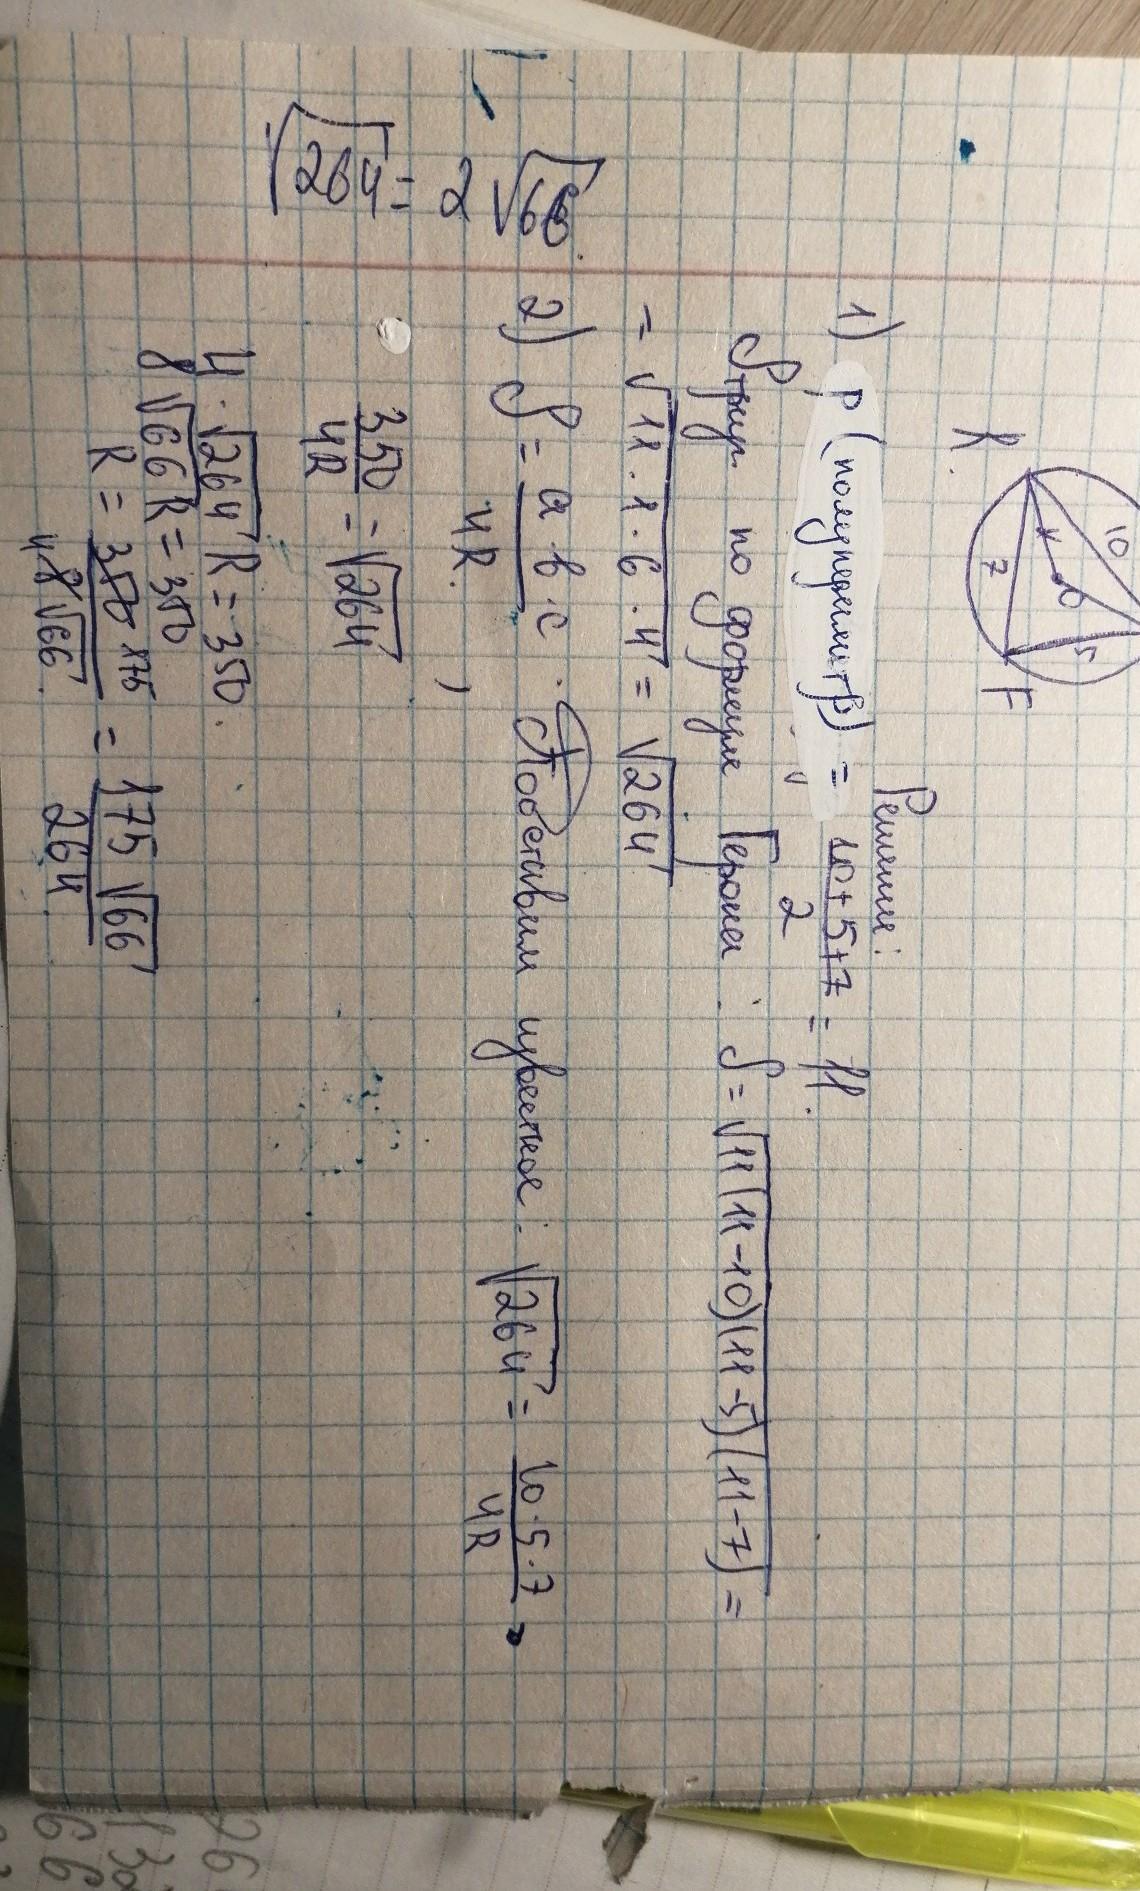 10
7
5
K.
F
Решение:
1) p (полупериметр) = 10+5+7 / 2 = 11.
Sтреуг. по формуле Герона: S = √11(11-10)(11-5)(11-7) =
= √11·1·6·4 = √264
2) S = a·b·c / 4R. Подставим известное: √264 = 10·5·7 / 4R,
350 / 4R = √264
4·√264 R = 350.
8√66 R = 350
R = 350 175 / 4 8√66. = 175√66 / 264
√264 = 2√66.
26
13
66